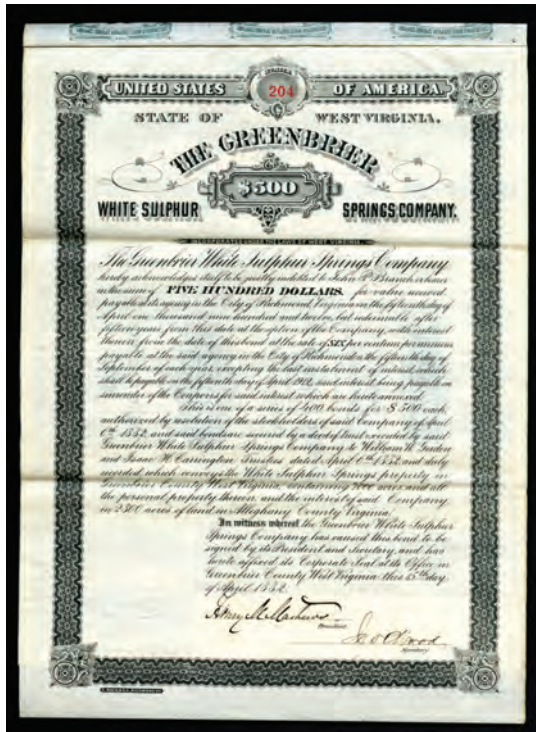 NUMBER
204
UNITED STATES OF AMERICA.
STATE OF WEST VIRGINIA.
THE GREENBRIER
$500
WHITE SULPHUR SPRINGS COMPANY.
INCORPORATED UNDER THE LAWS OF WEST VIRGINIA.
The Greenbrier White Sulphur Springs Company
hereby acknowledges itself to be justly indebted to John P. Branch or bearer
in the sum of FIVE HUNDRED DOLLARS, for value received
payable at its agency in the City of Richmond, Virginia on the fifteenth day of
April one thousand nine hundred and twelve, but redeemable after
fifteen years from this date at the option of the Company, with interest
thereon from the date of this bond at the rate of SIX per centum per annum
payable at the said agency in the City of Richmond on the fifteenth day of
September of each year, excepting the last instalment of interest, which
shall be payable on the fifteenth day of April 1912, said interest being payable on
surrender of the Coupons for said interest which are hereto annexed.
This is one of a series of 400 bonds for $500 each,
authorized by resolution of the stockholders of said Company of April
6th 1882 and said bonds are secured by a deed of trust executed by said
Greenbrier White Sulphur Springs Company to William W. Gordon
and Isaac H. Carrington Trustees dated April 6th 1882 and duly
recorded, which conveys the White Sulphur Springs property in
Greenbrier County West Virginia, containing acres and all
the personal property thereon, and the interest of said Company
in 2300 acres of land in Alleghany County Virginia.
In witness whereof the Greenbrier White Sulphur
Springs Company has caused this bond to be
signed by its President and Secretary, and has
hereto affixed its Corporate Seal at its Office in
Greenbrier County West Virginia this 15th day
of April 1882.
Henry M. Mathews
President
Wood
Secretary